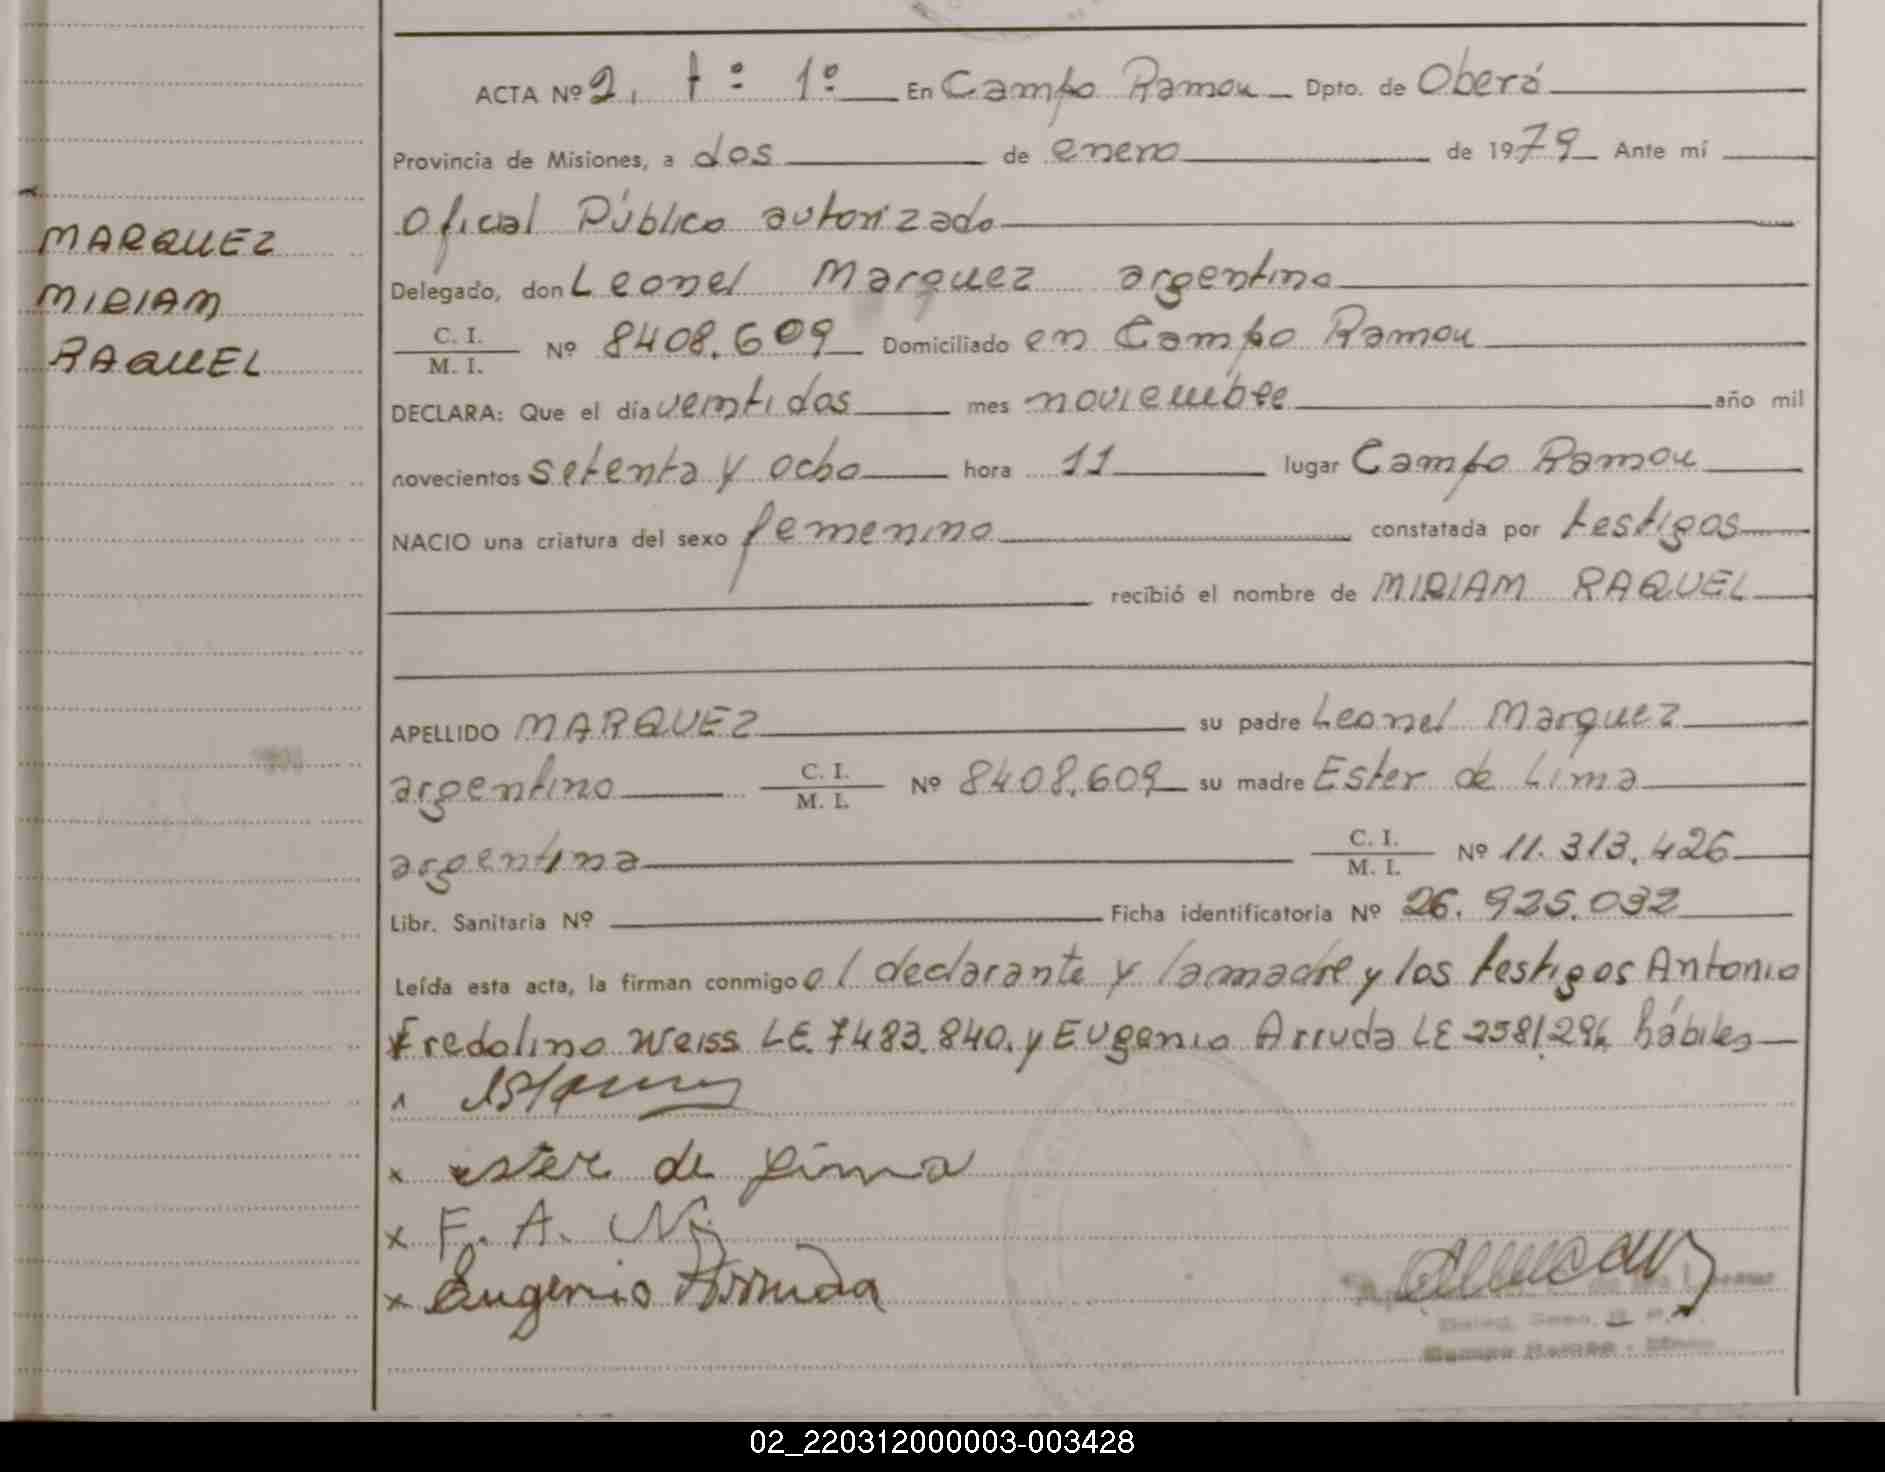 MARQUEZ
MIRIAM
RAQUEL
ACTA Nº 2. tº 1º En Campo Ramon Dpto. de Oberá
Provincia de Misiones, a dos de enero de 1979 Ante mí
Oficial Público autorizado
Delegado, don Leonel Marquez argentino
C. I.
M. I.
Nº 8408.609 Domiciliado en Campo Ramon
DECLARA: Que el día ventidos mes noviembre año mil
novecientos setenta y ocho hora 11 lugar Campo Ramon
NACIO una criatura del sexo femenino constatada por testigos
recibió el nombre de MIRIAM RAQUEL
APELLIDO MARQUEZ su padre Leonel Marquez
argentino C. I. M. I. Nº 8408.609 su madre Ester de Lima
argentina C. I. M. I. Nº 11.313.426
Libr. Sanitaria Nº Ficha identificatoria Nº 26.925.032
Leída esta acta, la firman conmigo el declarante y la madre y los testigos Antonio
Fredolino Weiss LE. 7483.840. y Eugenio Arruda LE 2581.294 hábiles
x ester de Lima
x F. A. W
x Eugenio Arruda
02_220312000003-003428